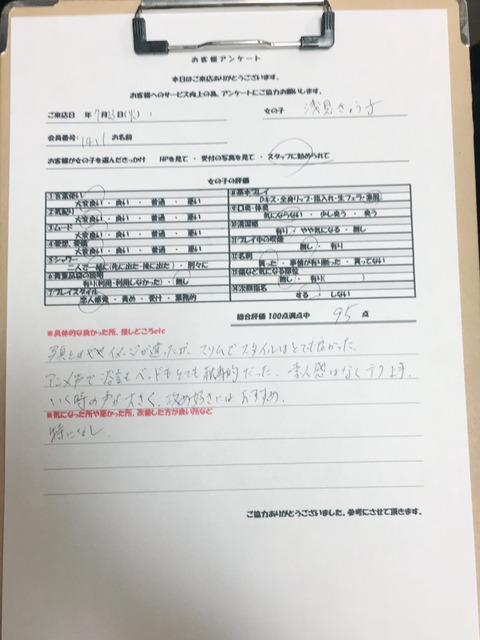 お客様アンケート
本日はご来店ありがとうございます。
お客様へのサービス向上の為、アンケートにご協力お願いします。
ご来店日 年 7月 日(火) 女の子 浅見きょう子
会員番号: 1411 お名前
お客様が女の子を選んだきっかけ HPを見て ・ 受付の写真を見て ・ スタッフに勧められて
女の子の評価
①言葉使い
大変良い ・ 良い ・ 普通 ・ 悪い
②気配り
大変良い ・ 良い ・ 普通 ・ 悪い
③ムード
大変良い ・ 良い ・ 普通 ・ 悪い
④愛想、愛嬌
大変良い ・ 良い ・ 普通 ・ 悪い
⑤シャワー
二人で一緒に(先に出た・後に出た) ・ 別々に
⑥貴重品袋の説明
有り(利用・利用しなかった) ・ 無し
⑦プレイスタイル
恋人感覚 ・ 責め ・ 受け ・ 業務的
⑧基本プレイ
Dキス・全身リップ・指入れ・生フェラ・素股
⑨口臭・体臭
気にならない ・ 少し臭う ・ 臭う
⑩清潔感
有り ・ やや気になる ・ 無し
⑪プレイ中の喫煙
無し ・ 有り
⑫名刺
貰った ・ 事情が有り断った ・ 貰ってない
⑬傷など気になる部位
無し ・ 有り( )
⑭次回指名
する ・ しない
総合評価 100点満点中 95 点
※具体的な良かった所、推しどころetc
写真とはややイメージが違ったが、スリムでスタイルはとても良かった。
アニメ声で 会話もベッドもとても献身的だった。素人感はなくテク上手。
いく時の声が大きく、攻め好きにはおすすめ。
※気になった所や悪かった所、改善した方が良い所など
特になし
ご協力ありがとうございました。参考にさせて頂きます。